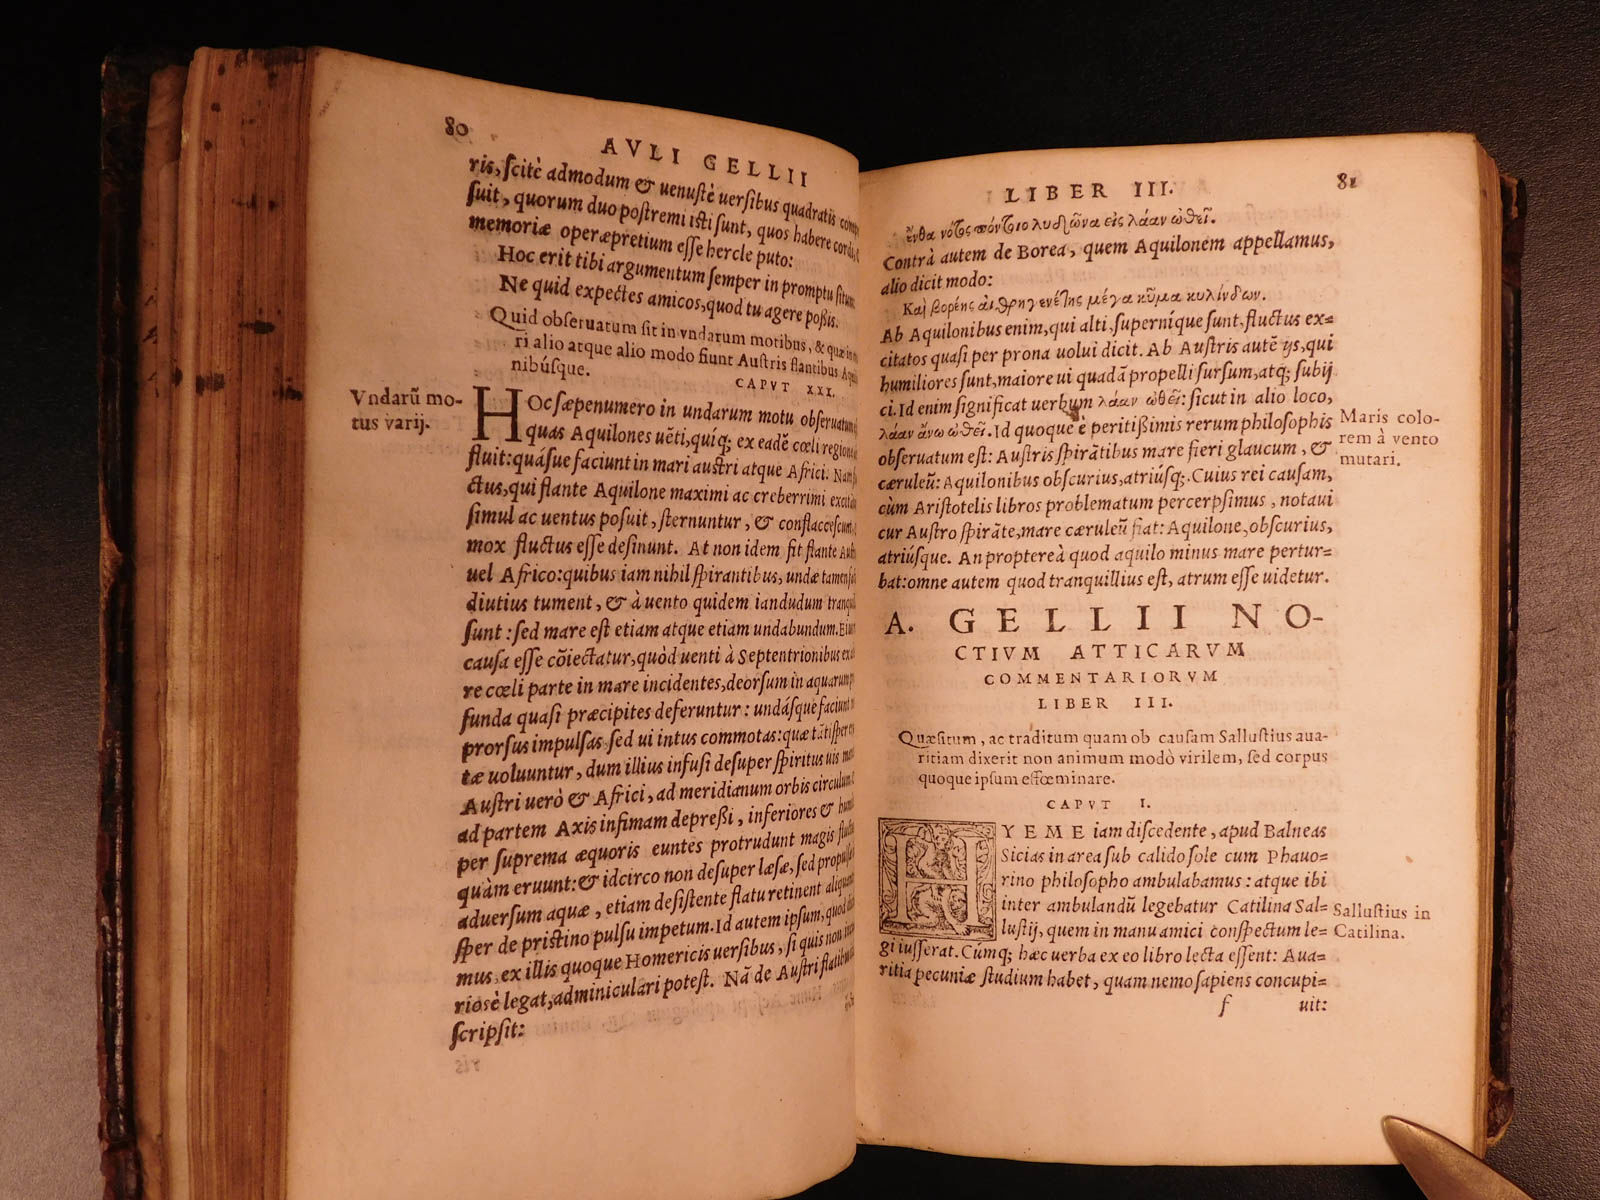 80
AVLI GELLII
ris, scitè admodum & uenustè uersibus quadratis
suit, quorum duo postremi isti sunt, quos habere cordi,
memoriæ operæpretium esse hercle puto:
Hoc erit tibi argumentum semper in promptu
Ne quid expectes amicos, quod tu agere poßis.
Quid obseruatum sit in vndarum motibus, &
ri alio atque alio modo fiunt Austris flantibus
nibúsque.
CAPVT XXX.
Vndarũ mo-
tus varij.
HOc sæpenumero in undarum motu
quas Aquilones uẽti, quíq; ex eadẽ cœli
fluit: quásue faciunt in mari austri atque Africi. Nam
ctus, qui flante Aquilone maximi ac creberrimi
simul ac uentus posuit, sternuntur, &
mox fluctus esse desinunt. At non idem fit flante
uel Africo: quibus iam nihil spirantibus, undæ tamen
diutius tument, & à uento quidem iandudum
sunt: sed mare est etiam atque etiam undabundum.
causa esse cõiectatur, quòd uenti à Septentrionibus
re cœli parte in mare incidentes, deorsum in aquarum
funda quasi præcipites deferuntur: undásque faciunt
prorsus impulsas, sed ui intus commotas: quæ
tæ uoluuntur, dum illius infusi desuper spiritus uis
Austri uerò & Africi, ad meridianum orbis circulum
ad partem Axis infimam depreßi, inferiores &
per suprema æquoris euntes protrudunt magis
quàm eruunt: & idcirco non desuper læsæ, sed
aduersum aquæ, etiam desistente flatu retinent
sper de pristino pulsu impetum. Id autem ipsum, quod
mus, ex illis quoque Homericis uersibus, si quis non
riosè legat, adminiculari potest. Nã de Austri
scripsit:
LIBER III.
81
ἔνθα νότος πόντοιο κλυδῶνα εἰς λάαν ὠθεῖ.
Contrà autem de Borea, quem Aquilonem appellamus,
alio dicit modo:
Καὶ βορέης αἰθρηγενέτης μέγα κῦμα κυλίνδων.
Ab Aquilonibus enim, qui alti, superníque sunt, fluctus ex=
citatos quasi per prona uolui dicit. Ab Austris autẽ ijs, qui
humiliores sunt, maiore ui quadã propelli sursum, atq; subij
ci. Id enim significat uerbum λάαν ὠθεῖ: sicut in alio loco,
λάαν ἄνω ὠθεῖ. Id quoque è peritißimis rerum philosophis
obseruatum est: Austris spirãtibus mare fieri glaucum, &
cæruleũ: Aquilonibus obscurius, atriúsq;. Cuius rei causam,
cùm Aristotelis libros problematum percerpsimus, notaui
cur Austro spirãte, mare cæruleũ fiat: Aquilone, obscurius,
atriúsque. An proptereà quod aquilo minus mare pertur=
bat: omne autem quod tranquillius est, atrum esse uidetur.
Maris colo-
rem à vento
mutari.
A. GELLII NO-
CTIVM ATTICARVM
COMMENTARIORVM
LIBER III.
Quæsitum, ac traditum quam ob causam Sallustius aua-
ritiam dixerit non animum modò virilem, sed corpus
quoque ipsum effœminare.
CAPVT I.
HYEME iam discedente, apud Balneas
Sicias in area sub calido sole cum Phauo=
rino philosopho ambulabamus: atque ibi
inter ambulandũ legebatur Catilina Sal=
lustij, quem in manu amici conspectum le=
gi iusserat. Cúmq; hæc uerba ex eo libro lecta essent: Aua=
ritia pecuniæ studium habet, quam nemo sapiens concupi=
Sallustius in
Catilina.
f uit: